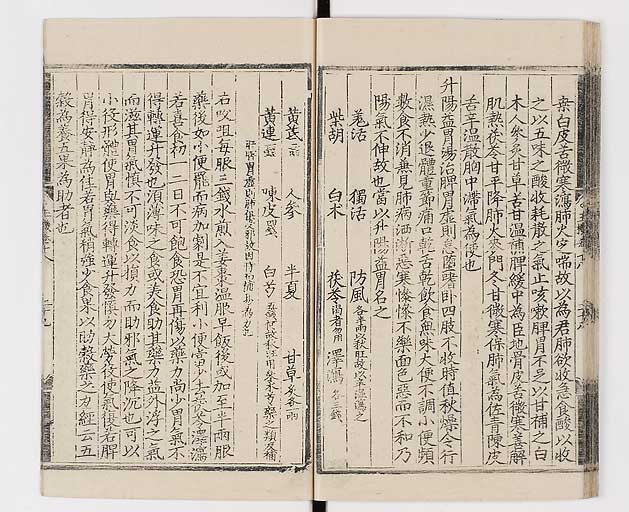 桒白皮苦微寒瀉肺火定喘故以為君肺欲收急食酸以收
之以五味之酸收耗散之氣止咳嗽脾胃不足以甘補之白
木人參炙甘草苦甘温補脾緩中為臣地骨皮苦微寒善解
肌熱茯苓甘平降肺火麥門冬甘微寒保肺氣為佐青陳皮
苦辛温散胸中滯氣為使也
升陽益胃湯治脾胃虛則怠墮嗜卧四肢不收時值秋燥令行
濕熱少退體重節痛口乾舌乾飲食無味大便不調小便頻
數食不消兼見肺病洒淅惡寒慘慘不樂面色惡而不和乃
陽氣不伸故也當以升陽益胃名之
羗活 獨活 防風各半兩以秋旺故以辛温瀉之
柴胡 白术 茯苓渴者勿用 澤瀉各三錢
黃芪二兩 人參 半夏 甘草炙各一兩
黃連一錢 陳皮四錢 白芍
㕮咀每服三錢水煎入姜棗温服早飯後或加至半兩服
藥後如小便罷而病加劇是不宜利小便當少去茯苓澤瀉
若喜食初一二日不可飽食恐胃再傷以藥力尚少胃氣不
得轉運升發也須薄味之食或美食助其藥力益升浮之氣
而滋其胃氣慎不可淡食以損藥力而助邪氣之降沉也可以
小役形體使胃與藥得轉運升發慎勿大勞役使氣復若脾
胃得安靜為佳若胃氣稍強少食果以助榖藥之力經云五
榖為養五果為助者也